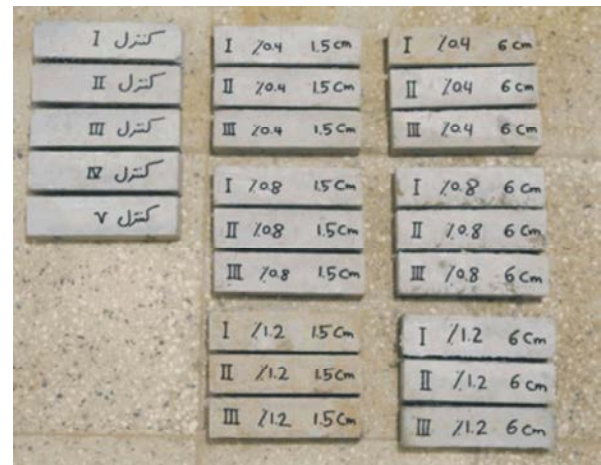 کنترل I
کنترل II
کنترل III
کنترل IV
کنترل V
I %0.4 1.5 cm
II %0.4 1.5 cm
III %0.4 1.5 cm
I %0.8 1.5 cm
II %0.8 1.5 cm
III %0.8 1.5 cm
I %1.2 1.5 cm
II %1.2 1.5 cm
III %1.2 1.5 cm
I %0.4 6 cm
II %0.4 6 cm
III %0.4 6 cm
I %0.8 6 cm
II %0.8 6 cm
III %0.8 6 cm
I %1.2 6 cm
II %1.2 6 cm
III %1.2 6 cm